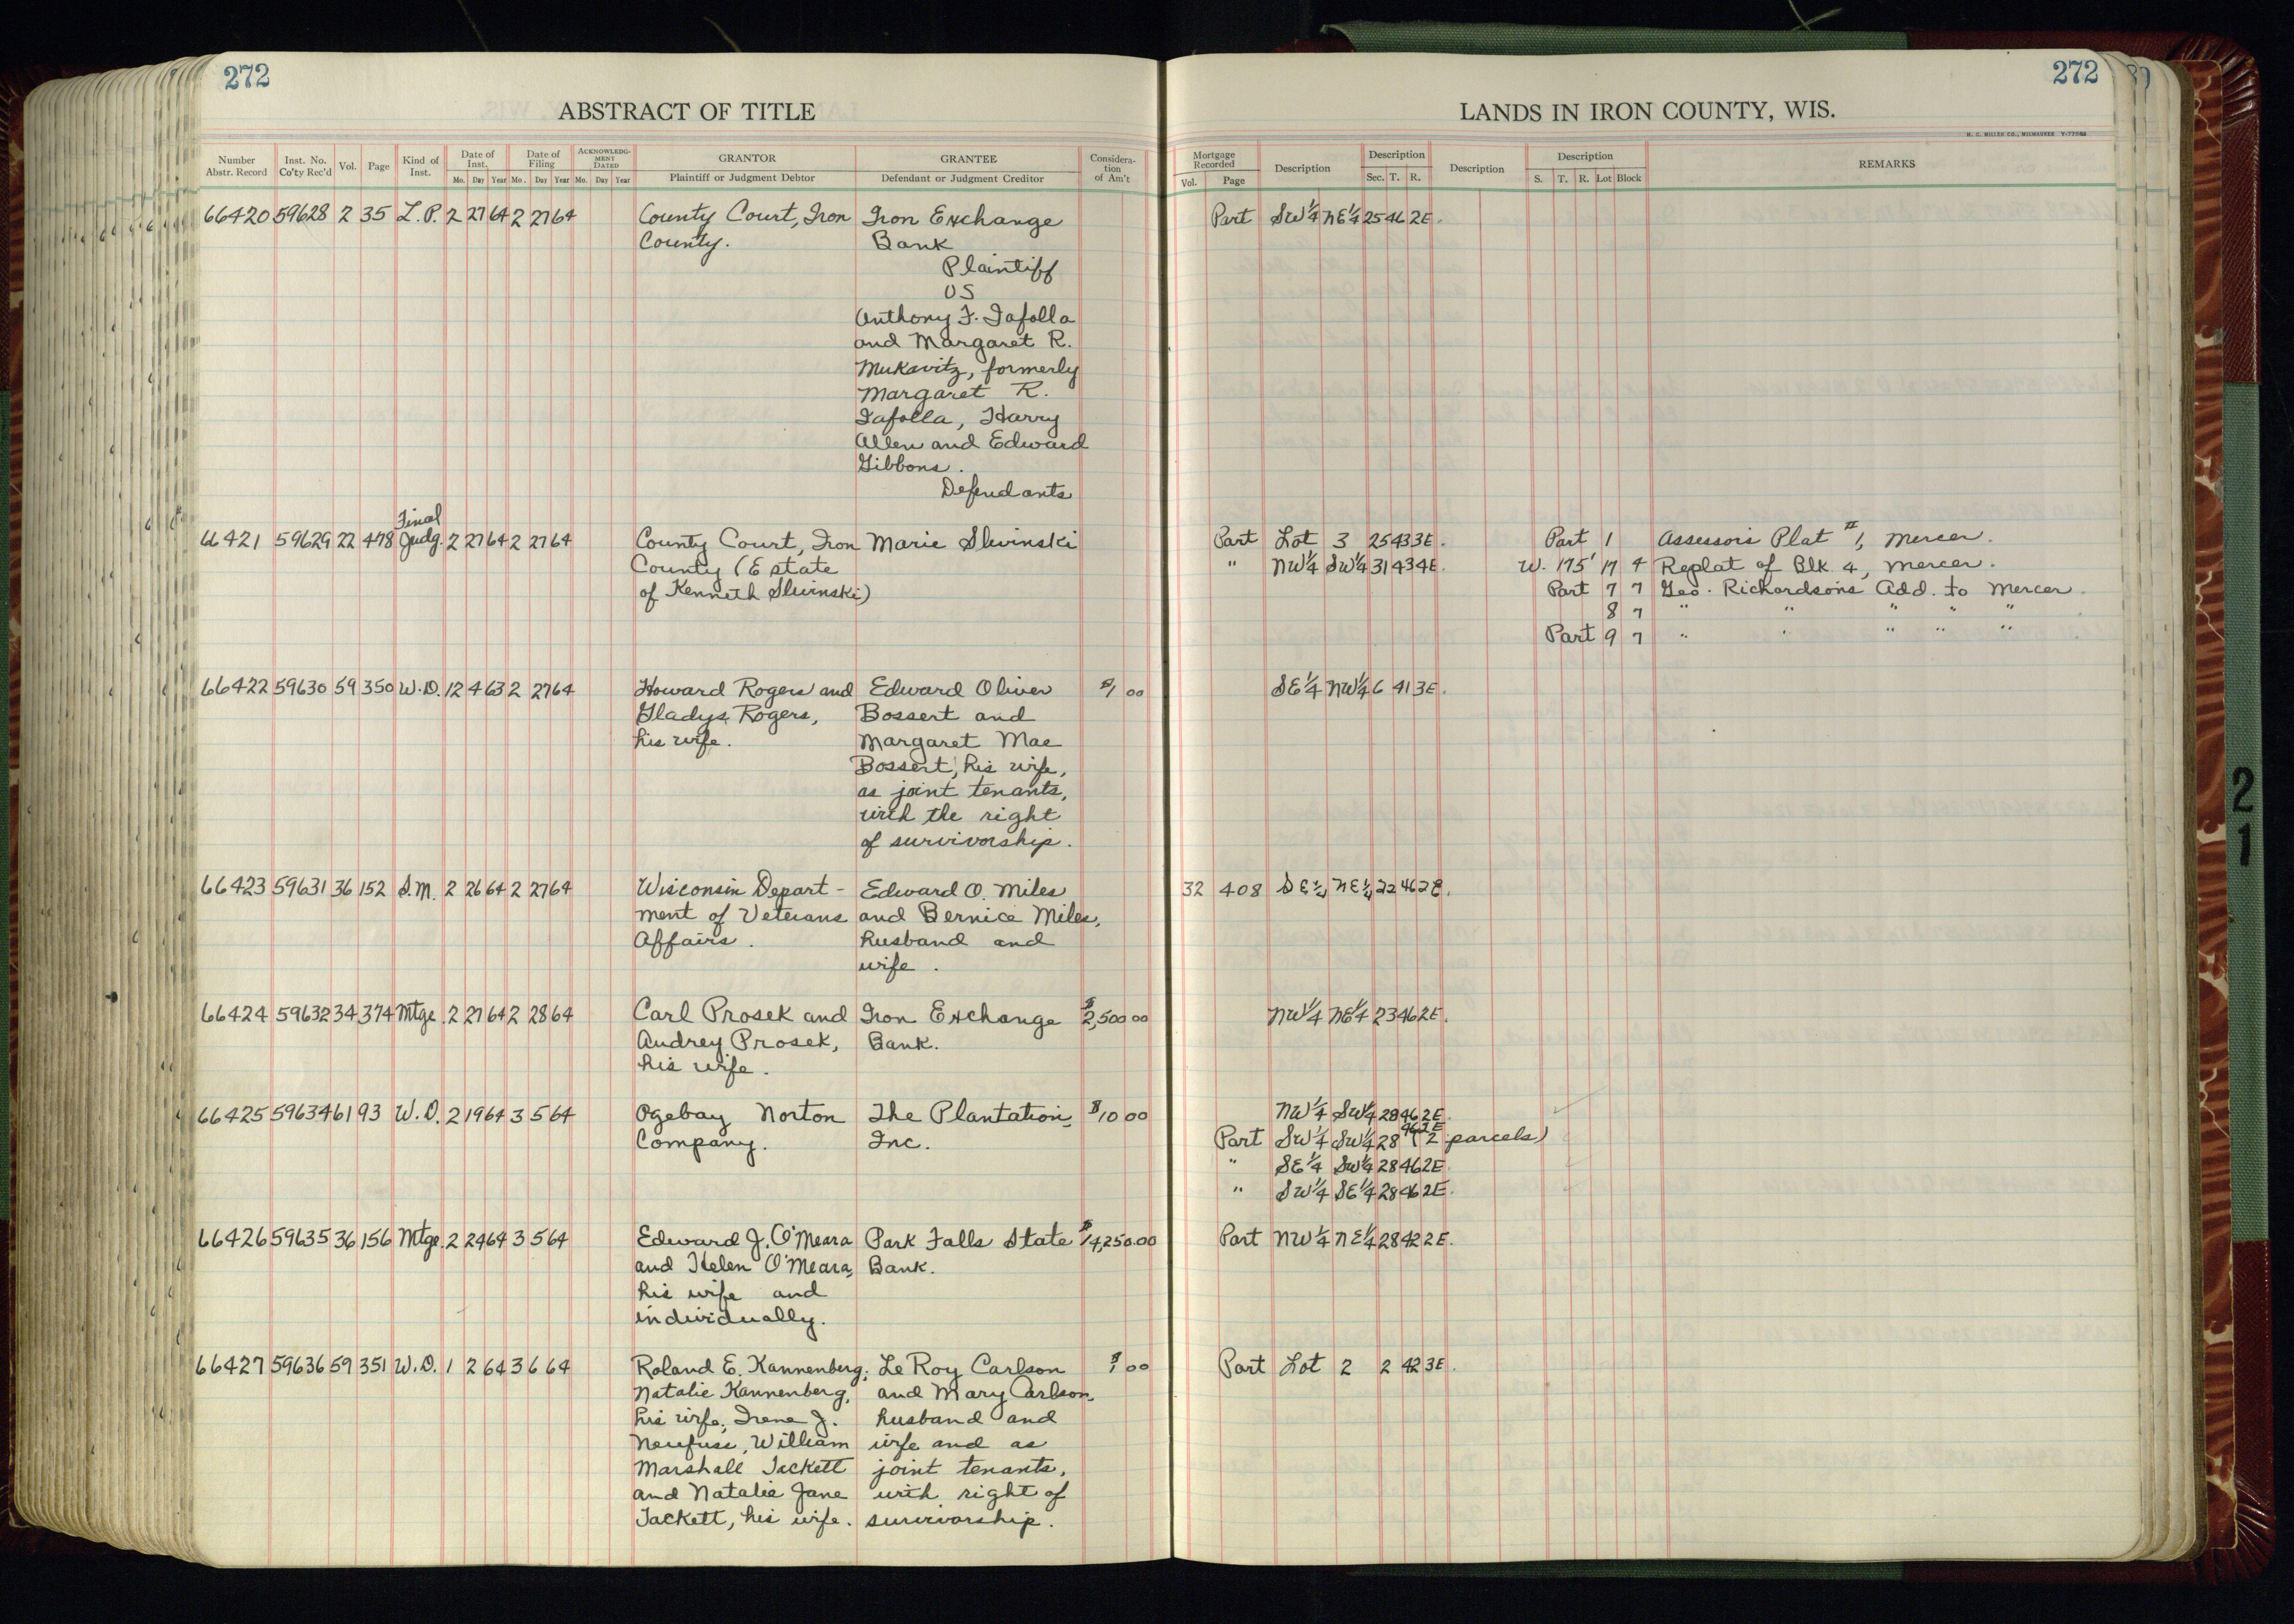 272
ABSTRACT OF TITLE
Number Abstr. Record | Inst. No. Co'ty Rec'd | Vol. | Page | Kind of Inst. | Date of Inst. Mo. Day Year | Date of Filing Mo. Day Year | ACKNOWLEDGMENT DATED Mo. Day Year | GRANTOR Plaintiff or Judgment Debtor | GRANTEE Defendant or Judgment Creditor | Consideration of Am't
66420 59628 2 35 L.P. 2 27 64 2 27 64 County Court, Iron Iron Exchange
County. Bank
Plaintiff
vs
Anthony F. Iafolla
and Margaret R.
Mukavitz, formerly
Margaret R.
Iafolla, Harry
Allen and Edward
Gibbons.
Defendants
Final
66421 59629 22 478 Judg. 2 27 64 2 27 64 County Court, Iron Marie Slivinski
County (Estate
of Kenneth Slivinski)
66422 59630 59 350 W.D. 12 4 63 2 27 64 Howard Rogers and Edward Oliver $1 00
Gladys Rogers, Bossert and
his wife. Margaret Mae
Bossert, his wife,
as joint tenants,
with the right
of survivorship.
66423 59631 36 152 S.M. 2 26 64 2 27 64 Wisconsin Depart- Edward O. Miles
ment of Veterans and Bernice Miles,
Affairs. husband and
wife.
66424 59632 34 374 Mtge. 2 27 64 2 28 64 Carl Prosek and Iron Exchange $2,500 00
Audrey Prosek, Bank.
his wife.
66425 59634 61 93 W.D. 2 19 64 3 5 64 Ogebay Norton The Plantation, $10 00
Company. Inc.
66426 59635 36 156 Mtge. 2 24 64 3 5 64 Edward J. O'Meara Park Falls State $14,250.00
and Helen O'Meara, Bank.
his wife and
individually.
66427 59636 59 351 W.D. 1 2 64 3 6 64 Roland E. Kannenberg, LeRoy Carlson $1 00
Natalie Kannenberg, and Mary Carlson,
his wife, Irene J. husband and
William wife and as
Marshall Tackett joint tenants,
and Natalie Jane with right of
Tackett, his wife. survivorship.
272
LANDS IN IRON COUNTY, WIS.
H. C. MILLER CO., MILWAUKEE
Mortgage Recorded Vol. Page | Description | Description Sec. T. R. | Description | Description S. T. R. Lot Block | REMARKS
Part SW¼ NE¼ 25 46 2E.
Part Lot 3 25 43 3E. Part 1 Assessor's Plat #1, Mercer.
" NW¼ SW¼ 31 43 4E. W. 175' 17 4 Replat of Blk. 4, Mercer.
Part 7 7 Geo. Richardson's Add. to Mercer.
8 7 " " " " "
Part 9 7 " " " " "
SE¼ NW¼ 6 41 3E.
32 408 SE¼ NE¼ 22 46 2E.
NW¼ NE¼ 23 46 2E.
NW¼ SW¼ 28 46 2E.
Part SW¼ SW¼ 28 46 2E (2 parcels)
" SE¼ SW¼ 28 46 2E.
" SW¼ SE¼ 28 46 2E.
Part NW¼ NE¼ 28 42 2E.
Part Lot 2 2 42 3E.
21